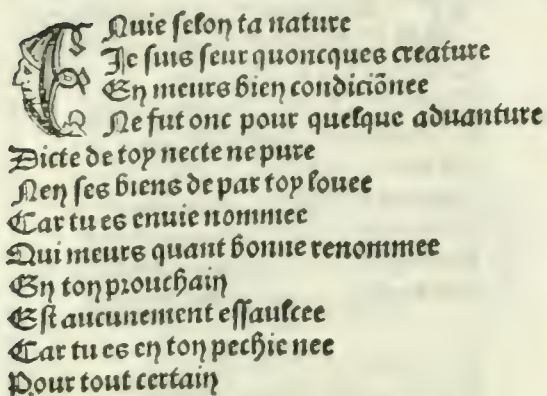 ENuie ſelon ta nature
Je ſuis ſeur quoncques creature
En meurs bien condiciõnee
Ne fut onc pour quelque aduanture
Dicte de toy necte ne pure
Nen ſes biens de par toy louee
Car tu es enuie nommee
Qui meurs quant bonne renommee
En ton prouchain
Eſt aucunement eſſaulcee
Car tu es en ton pechie nee
Pour tout certain